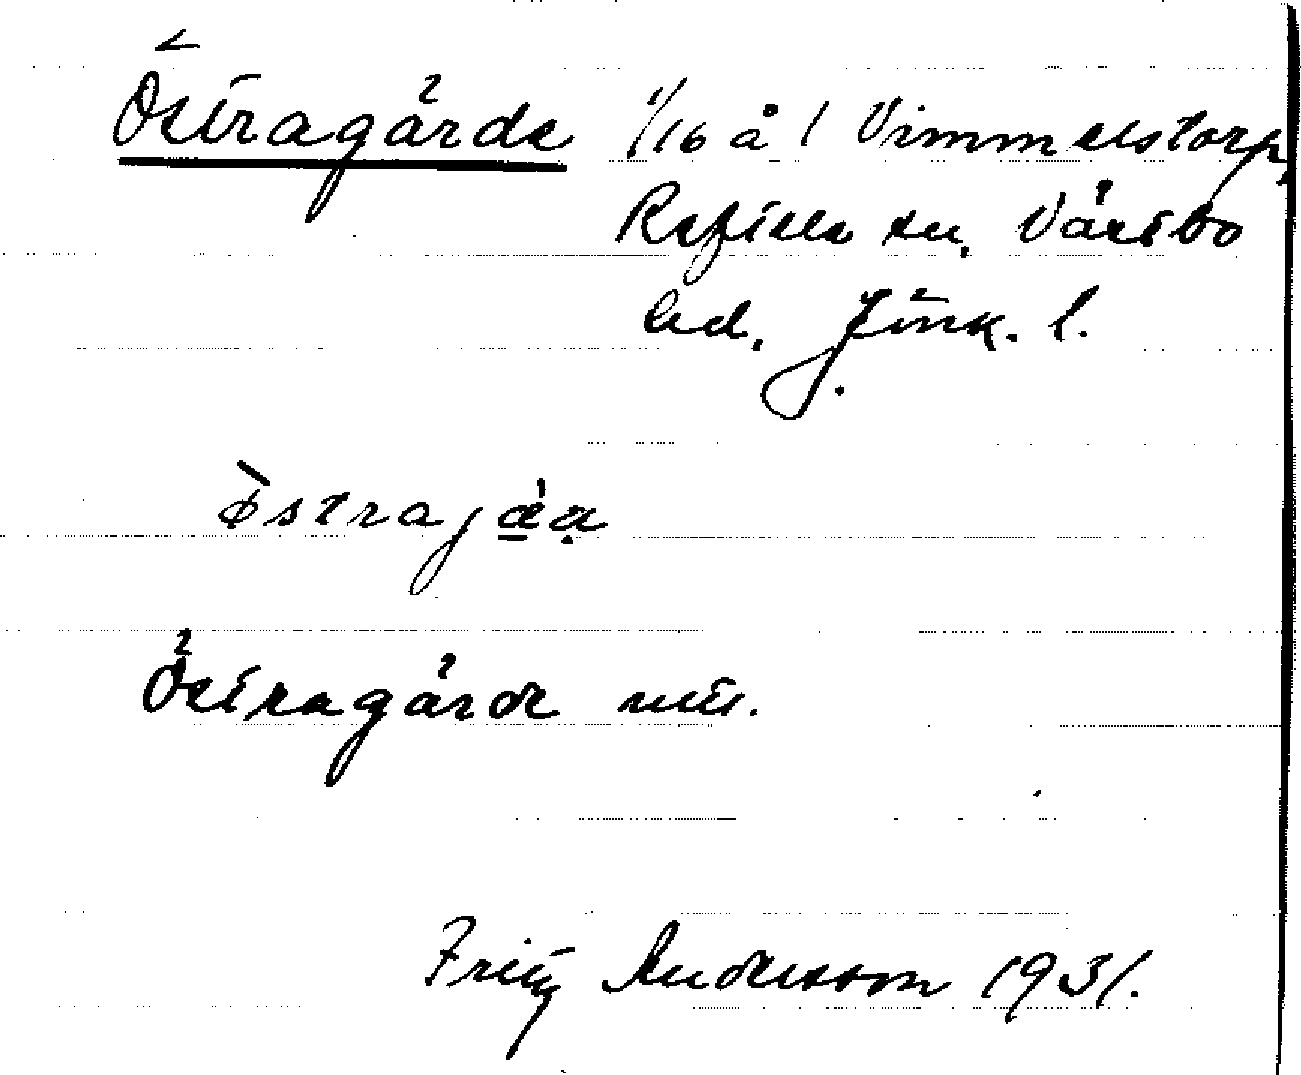 Östragärde 1/16 å 1 Vimmelstorp,
Refteles sn, Västbo
hd, Jönk. l.
östrajäa
Östragärde
Fritz Andersson 1931.